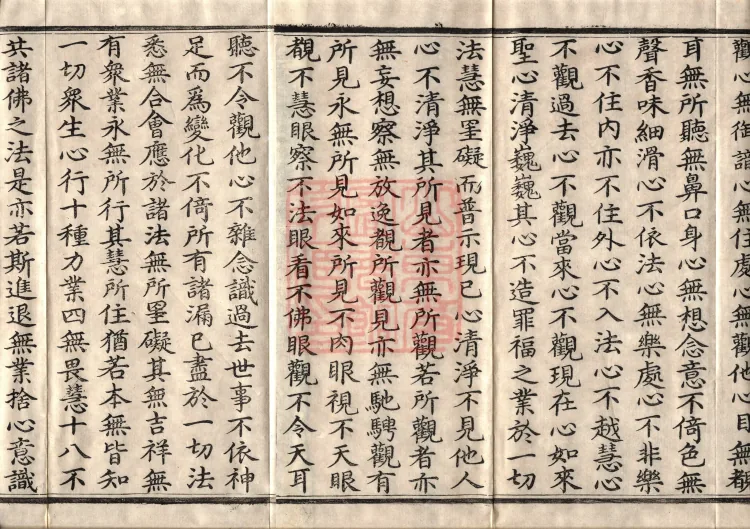 觀心無御諠心無住處心無觀他心目無覩
耳無所聽無鼻口身心無想念意不倚色無
聲香味細滑心不依法心無樂處心不非樂
心不住內亦不住外心不入法心不越慧心
不觀過去心不觀當來心不觀現在心如來
聖心清淨巍巍其心不造罪福之業於一切
法慧無罣礙而普示現已心清淨不見他人
心不清淨其所見者亦無所觀若所觀者亦
無妄想察無放逸覩所觀見亦無馳騁觀有
所見永無所見如來所見不肉眼視不天眼
覩不慧眼察不法眼看不佛眼觀不令天耳
聽不令觀他心不雜念識過去世事不依神
足而為變化不倚所有諸漏已盡於一切法
悉無合會應於諸法無所罣礙其無吉祥無
有眾業永無所行其慧所住猶若本無皆知
一切眾生心行十種力業四無畏慧十八不
共諸佛之法是亦若斯進退無業捨心意識